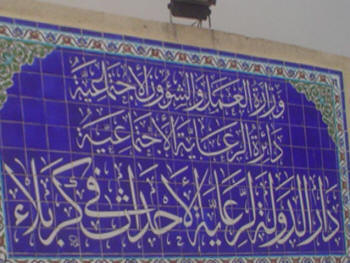 وزارة العمل والشؤون الاجتماعية
دائرة الرعاية الاجتماعية
دار الدولة لرعاية الأحداث في كربلاء